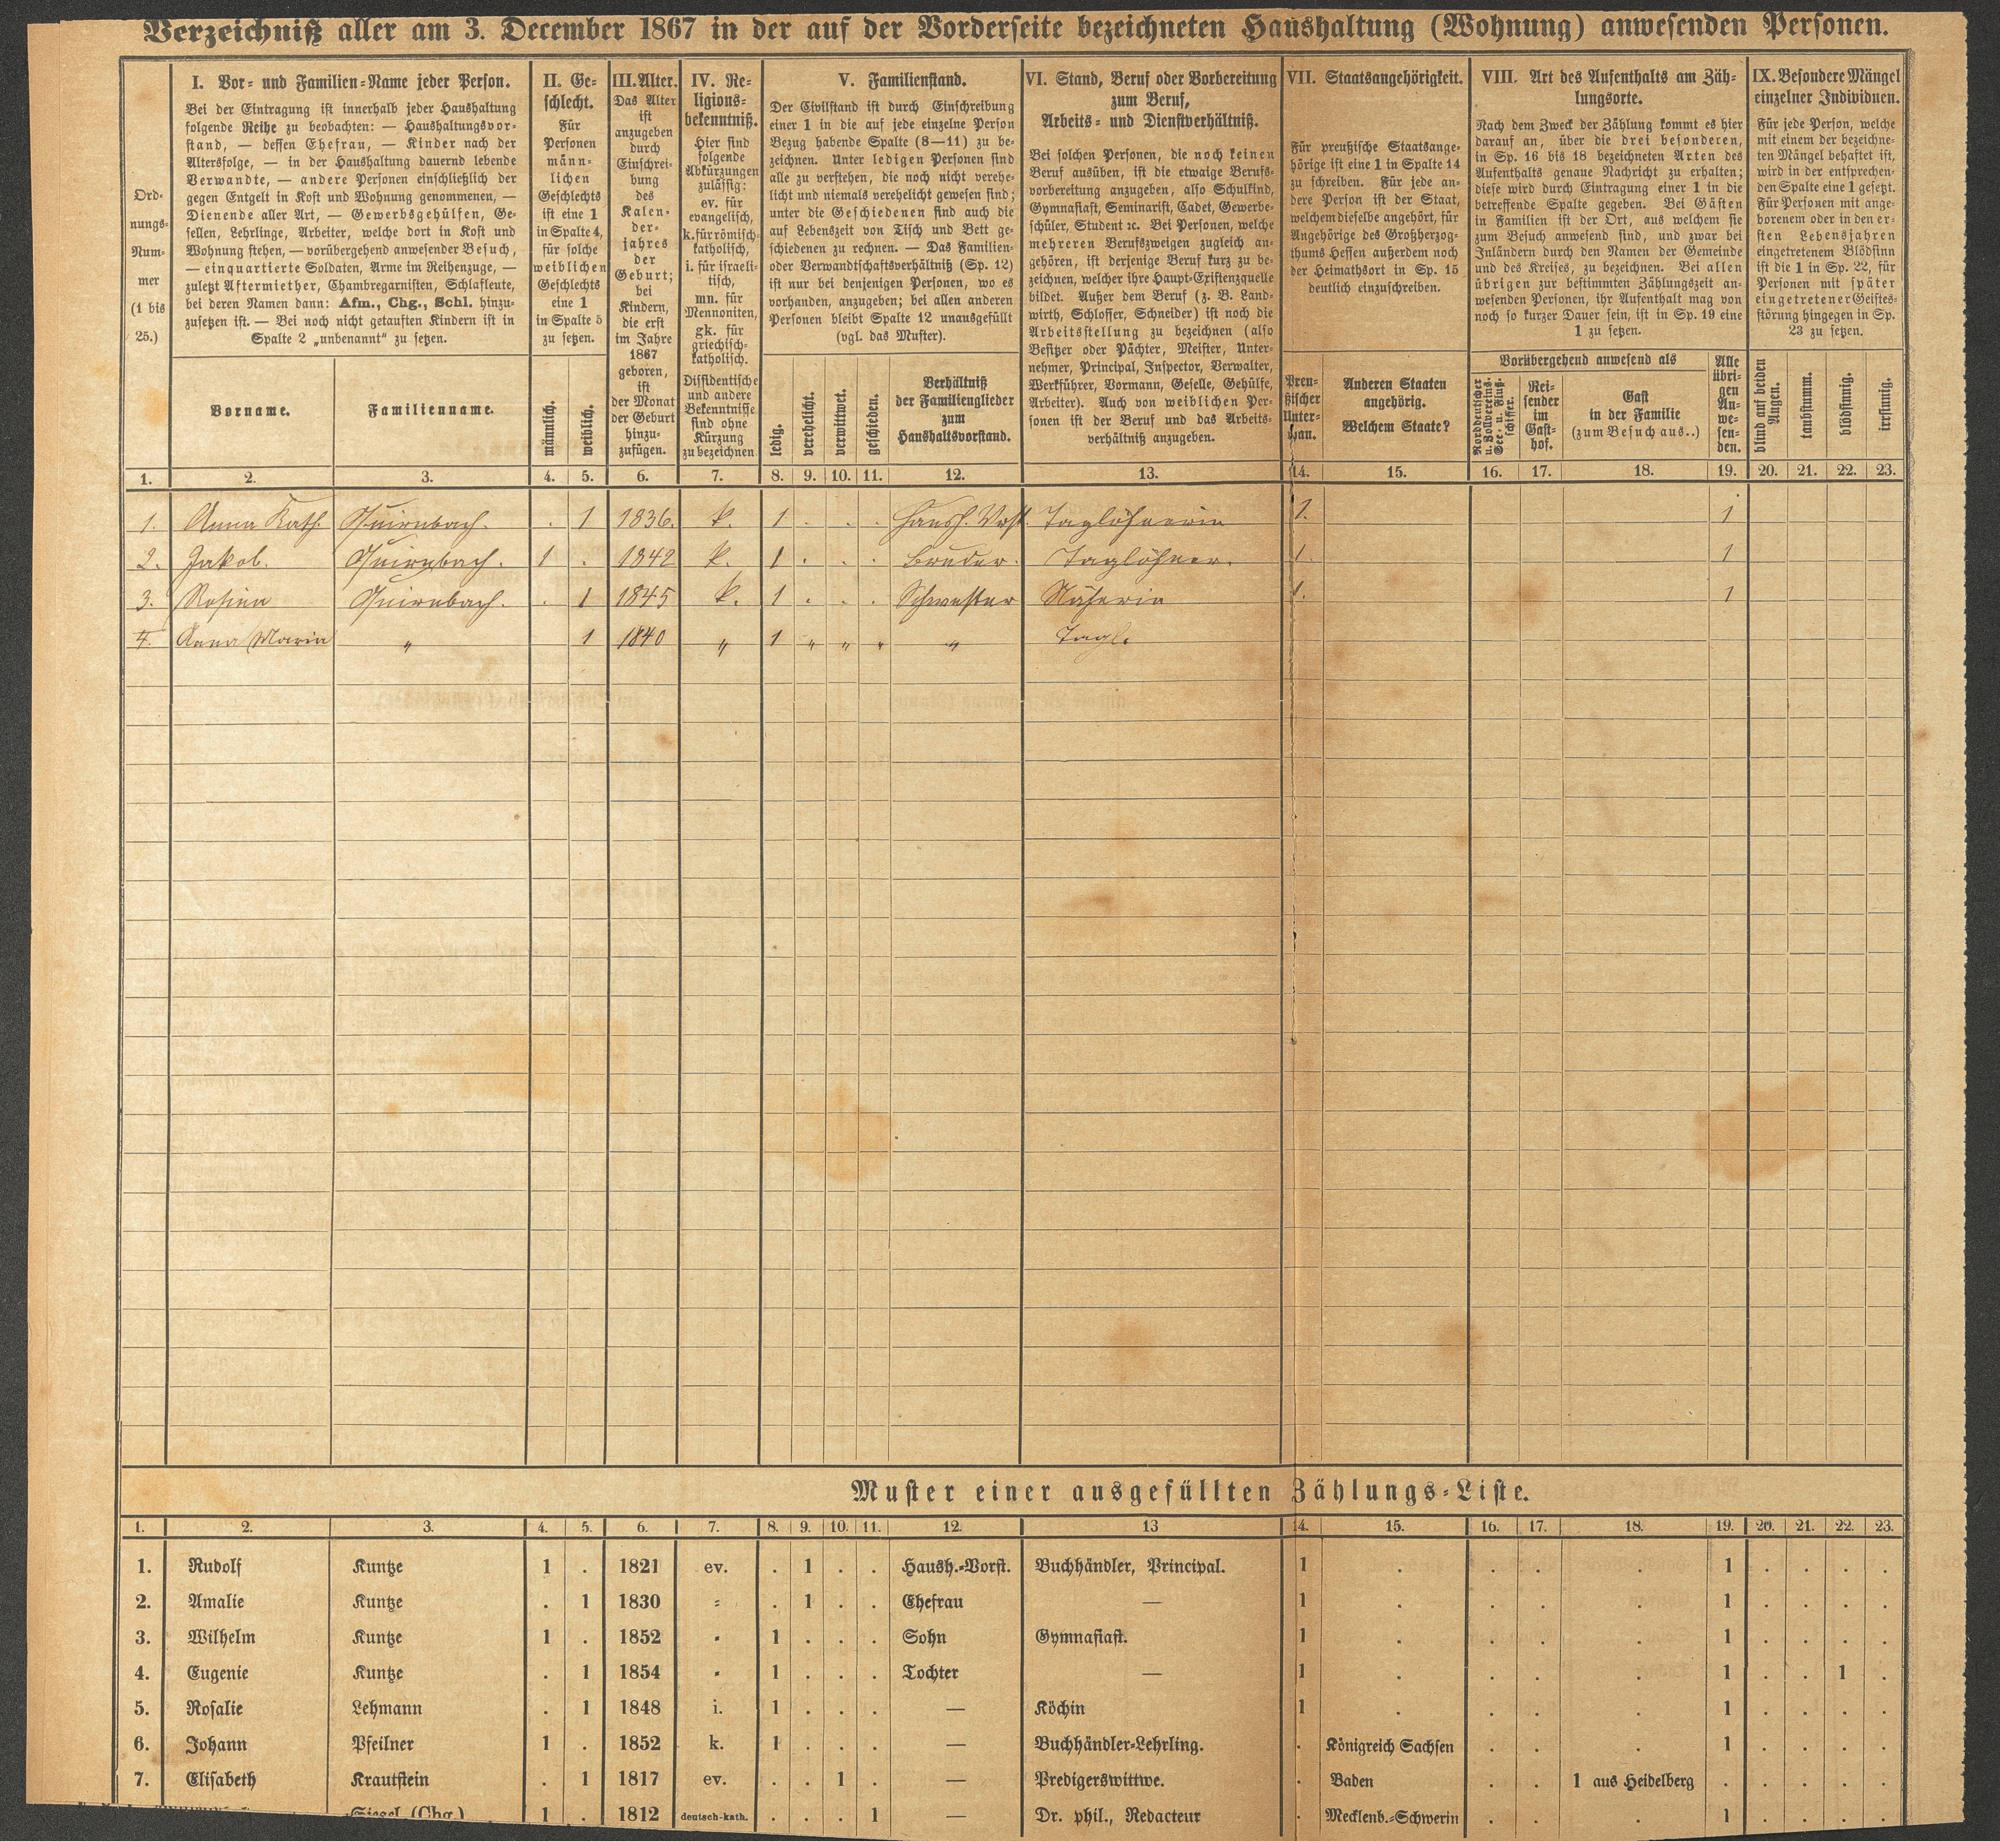 Verzeichniß aller am 3. December 1867 in der auf der Vorderseite bezeichneten Haushaltung (Wohnung) anwesenden Personen.
Ord-
nungs-
Num-
mer
(1 bis
25.)
I. Vor- und Familien-Name jeder Person.
Bei der Eintragung ist innerhalb jeder Haushaltung
folgende Reihe zu beobachten: — Haushaltungsvor-
stand, — dessen Ehefrau, — Kinder nach der
Altersfolge, — in der Haushaltung dauernd lebende
Verwandte, — andere Personen einschließlich der
gegen Entgelt in Kost und Wohnung genommenen, —
Dienende aller Art, — Gewerbsgehülfen, Ge-
sellen, Lehrlinge, Arbeiter, welche dort in Kost und
Wohnung stehen, — vorübergehend anwesender Besuch,
— einquartierte Soldaten, Arme im Reihenzuge, —
zuletzt Aftermiether, Chambregarnisten, Schlafleute,
bei deren Namen dann: Afm., Chg., Schl. hinzu-
zusetzen ist. — Bei noch nicht getauften Kindern ist in
Spalte 2 „unbenannt“ zu setzen.
Vorname.
Familienname.
II. Ge-
schlecht.
Für
Personen
männ-
lichen
Geschlechts
ist eine 1
in Spalte 4,
für solche
weiblichen
Geschlechts
eine 1
in Spalte 5
zu setzen.
männlich.
weiblich.
III. Alter.
Das Alter
ist
anzugeben
durch
Einschrei-
bung
des
Kalen-
der-
jahres
der
Geburt;
bei
Kindern,
die erst
im Jahre
1867
geboren,
ist
der Monat
der Geburt
hinzu-
zufügen.
IV. Re-
ligions-
bekenntniß.
Hier sind
folgende
Abkürzungen
zulässig:
ev. für
evangelisch,
k. für römisch-
katholisch,
i. für israeli-
tisch,
mn. für
Mennoniten,
gk. für
griechisch-
katholisch.
Dissidentische
und andere
Bekenntnisse
sind ohne
Kürzung
zu bezeichnen.
V. Familienstand.
Der Civilstand ist durch Einschreibung
einer 1 in die auf jede einzelne Person
Bezug habende Spalte (8—11) zu be-
zeichnen. Unter ledigen Personen sind
alle zu verstehen, die noch nicht verehe-
licht und niemals verehelicht gewesen sind;
unter die Geschiedenen sind auch die
auf Lebenszeit von Tisch und Bett ge-
schiedenen zu rechnen. — Das Familien-
oder Verwandtschaftsverhältniß (Sp. 12)
ist nur bei denjenigen Personen, wo es
vorhanden, anzugeben; bei allen anderen
Personen bleibt Spalte 12 unausgefüllt
(vgl. das Muster).
ledig.
verehelicht.
verwittwet.
geschieden.
Verhältniß
der Familienglieder
zum
Haushaltsvorstand.
VI. Stand, Beruf oder Vorbereitung
zum Beruf,
Arbeits- und Dienstverhältniß.
Bei solchen Personen, die noch keinen
Beruf ausüben, ist die etwaige Berufs-
vorbereitung anzugeben, also Schulkind,
Gymnasiast, Seminarist, Cadet, Gewerbe-
schüler, Student ꝛc. Bei Personen, welche
mehreren Berufszweigen zugleich an-
gehören, ist derjenige Beruf kurz zu be-
zeichnen, welcher ihre Haupt-Existenzquelle
bildet. Außer dem Beruf (z. B. Land-
wirth, Schlosser, Schneider) ist noch die
Arbeitsstellung zu bezeichnen (also
Besitzer oder Pächter, Meister, Unter-
nehmer, Principal, Inspector, Verwalter,
Werkführer, Vormann, Geselle, Gehülfe,
Arbeiter). Auch von weiblichen Per-
sonen ist der Beruf und das Arbeits-
verhältniß anzugeben.
VII. Staatsangehörigkeit.
Für preußische Staatsange-
hörige ist eine 1 in Spalte 14
zu schreiben. Für jede an-
dere Person ist der Staat,
welchem dieselbe angehört, für
Angehörige des Großherzog-
thums Hessen außerdem noch
der Heimathsort in Sp. 15
deutlich einzuschreiben.
Preu-
ßischer
Unter-
than.
Anderen Staaten
angehörig.
Welchem Staate?
VIII. Art des Aufenthalts am Zäh-
lungsorte.
Nach dem Zweck der Zählung kommt es hier
darauf an, über die drei besonderen,
in Sp. 16 bis 18 bezeichneten Arten des
Aufenthalts genaue Nachricht zu erhalten;
diese wird durch Eintragung einer 1 in die
betreffende Spalte gegeben. Bei Gästen
in Familien ist der Ort, aus welchem sie
zum Besuch anwesend sind, und zwar bei
Inländern durch den Namen der Gemeinde
und des Kreises, zu bezeichnen. Bei allen
übrigen zur bestimmten Zählungszeit an-
wesenden Personen, ihr Aufenthalt mag von
noch so kurzer Dauer sein, ist in Sp. 19 eine
1 zu setzen.
Vorübergehend anwesend als
Norddeutscher
u. Zollvereins-
See- u. Fluß-
schiffer.
Rei-
sender
im
Gast-
hof.
Gast
in der Familie
(zum Besuch aus..)
Alle
übri-
gen
An-
we-
sen-
den.
IX. Besondere Mängel
einzelner Individuen.
Für jede Person, welche
mit einem der bezeichne-
ten Mängel behaftet ist,
wird in der entsprechen-
den Spalte eine 1 gesetzt.
Für Personen mit ange-
borenem oder in den er-
sten Lebensjahren
eingetretenem Blödsinn
ist die 1 in Sp. 22, für
Personen mit später
eingetretener Geistes-
störung hingegen in Sp.
23 zu setzen.
blind auf beiden
Augen.
taubstumm.
blödsinnig.
irrsinnig.
1. 2. 3. 4. 5. 6. 7. 8. 9. 10. 11. 12. 13. 14. 15. 16. 17. 18. 19. 20. 21. 22. 23.
1. Anna Kath. Quirnbach. . 1 1836. k. 1 . . . Haush. Vrst. Taglöhnerin 1. 1
2. Jakob. Quirnbach. 1 . 1842 k. 1 . . . Bruder. Taglöhner. 1. 1
3. Rosina Quirnbach. . 1 1845 k. 1 . . . Schwester Näherin 1. 1
4. Anna Maria " 1 1840 " 1 " " " " Tagl.
Muster einer ausgefüllten Zählungs-Liste.
1. 2. 3. 4. 5. 6. 7. 8. 9. 10. 11. 12. 13 14. 15. 16. 17. 18. 19. 20. 21. 22. 23.
1. Rudolf Kuntze 1 . 1821 ev. . 1 . . Haush.-Vorst. Buchhändler, Principal. 1 . . . . 1 . . . .
2. Amalie Kuntze . 1 1830 " . 1 . . Ehefrau — 1 . . . . 1 . . . .
3. Wilhelm Kuntze 1 . 1852 " 1 . . . Sohn Gymnasiast. 1 . . . . 1 . . . .
4. Eugenie Kuntze . 1 1854 " 1 . . . Tochter — 1 . . . . 1 . . 1 .
5. Rosalie Lehmann . 1 1848 i. 1 . . . — Köchin 1 . . . . 1 . . . .
6. Johann Pfeilner 1 . 1852 k. 1 . . . — Buchhändler-Lehrling. . Königreich Sachsen . . . 1 . . . .
7. Elisabeth Krautstein . 1 1817 ev. . . 1 . — Predigerswittwe. . Baden . . 1 aus Heidelberg . . . . .
Siegel (Chg.) 1 . 1812 deutsch-kath. . . . 1 — Dr. phil., Redacteur . Mecklenb.-Schwerin . . . 1 . . . .